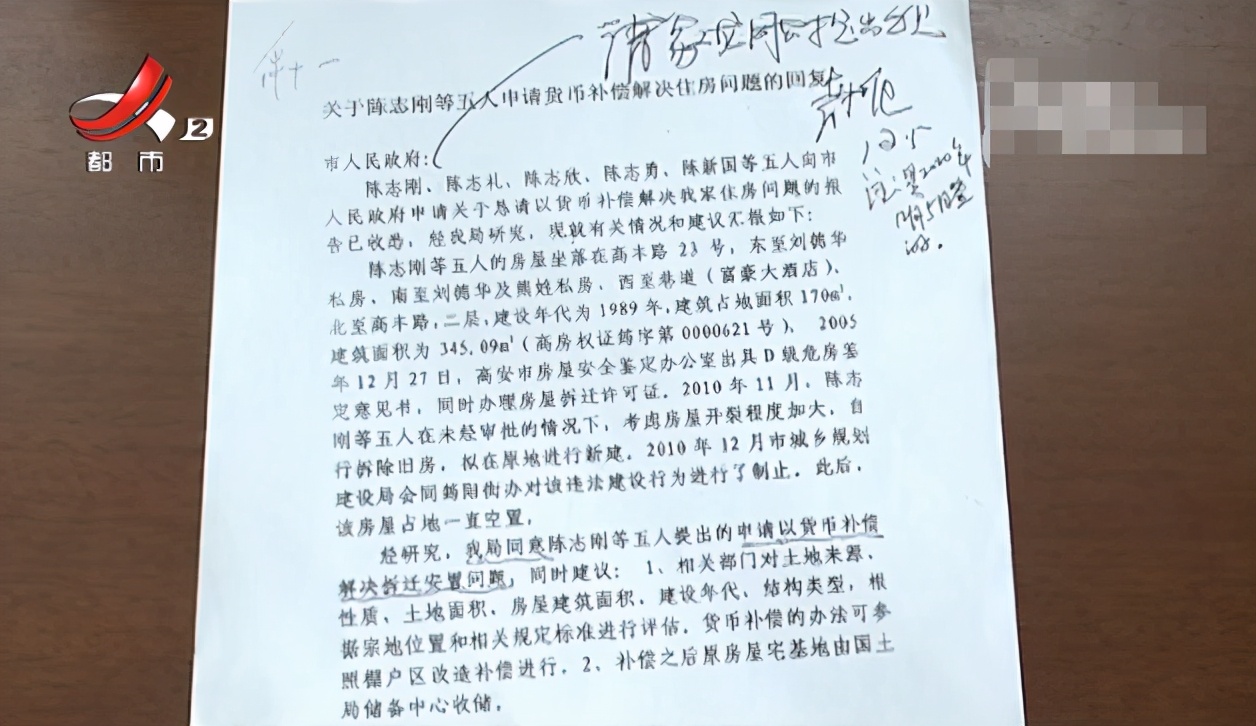 件十一
都市
2
关于陈志刚等五人申请货币补偿解决住房问题的回复
市人民政府:
陈志刚、陈志礼、陈志欣、陈志勇、陈新国等五人向市
人民政府申请关于恳请以货币补偿解决我家住房问题的报
告已收悉,经我局研究,现就有关情况和建议汇报如下:
陈志刚等五人的房屋坐落在高丰路23号,东至刘德华
私房、南至刘德华及熊姓私房、西至巷道(富豪大酒店)、
北至高丰路,二层,建设年代为1989年,建筑占地面积170㎡,
建筑面积为345.09㎡(商房权证筠字第0000621号)、2005
年12月27日,高安市房屋安全鉴定办公室出具D级危房鉴
定意见书,同时办理房屋拆迁许可证。2010年11月,陈志
刚等五人在未经审批的情况下,考虑房屋开裂程度加大,自
行拆除旧房,拟在原地进行新建。2010年12月市城乡规划
建设局会同筠阳街办对该违法建设行为进行了制止。此后,
该房屋占地一直空置。
经研究,我局同意陈志刚等五人提出的申请以货币补偿
解决拆迁安置问题,同时建议:1、相关部门对土地来源、
性质、土地面积、房屋建筑面积、建设年代、结构类型,根
据宗地位置和相关规定标准进行评估。货币补偿的办法可参
照棚户区改造补偿进行。2、补偿之后原房屋宅基地由国土
局储备中心收储。